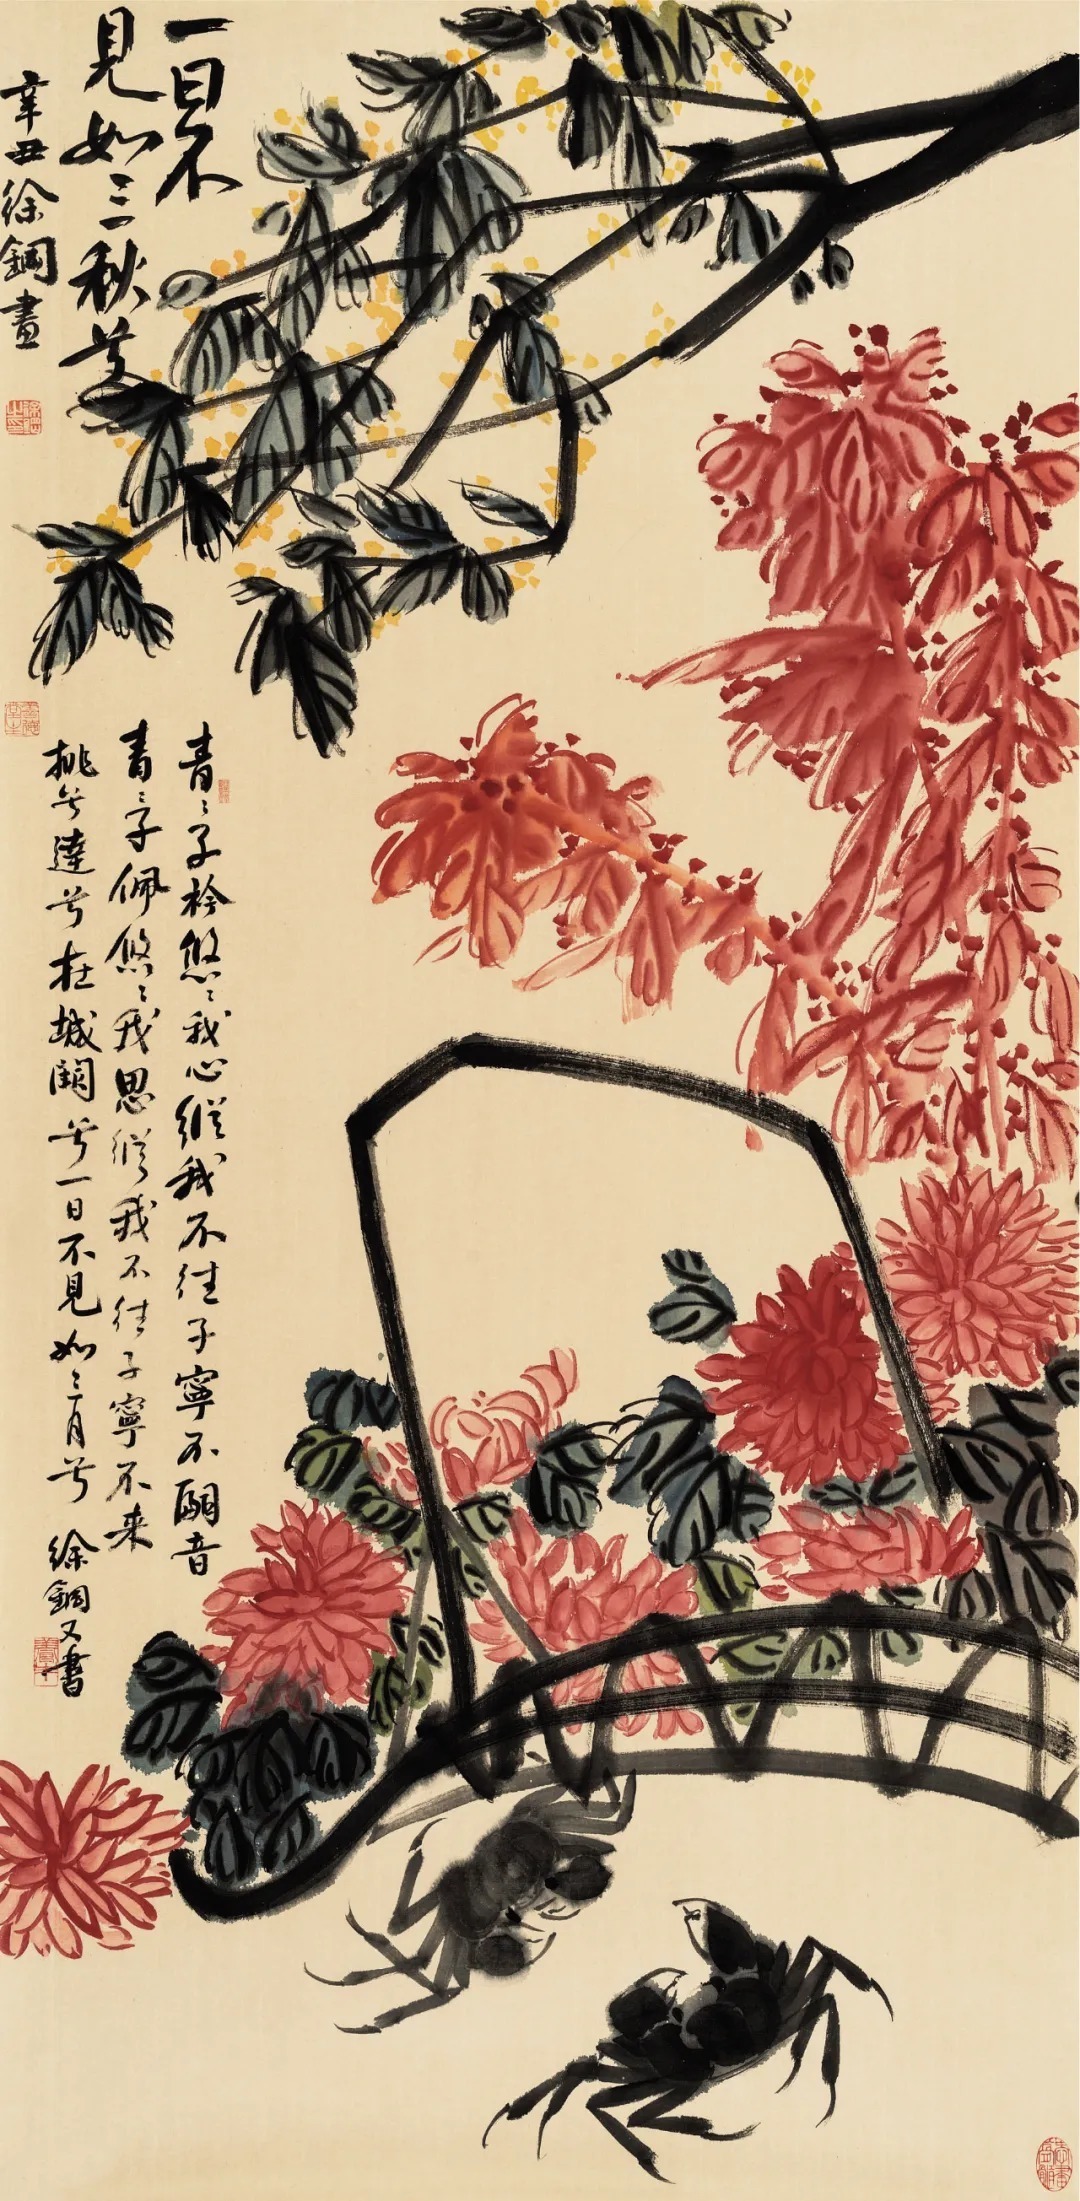 一日不
見如三秋兮
辛丑徐鋼畫
青〻子衿悠〻我心縱我不往子寧不嗣音
青〻子佩悠〻我思縱我不往子寧不来
挑兮達兮在城闕兮一日不見如三月兮 徐鋼又書